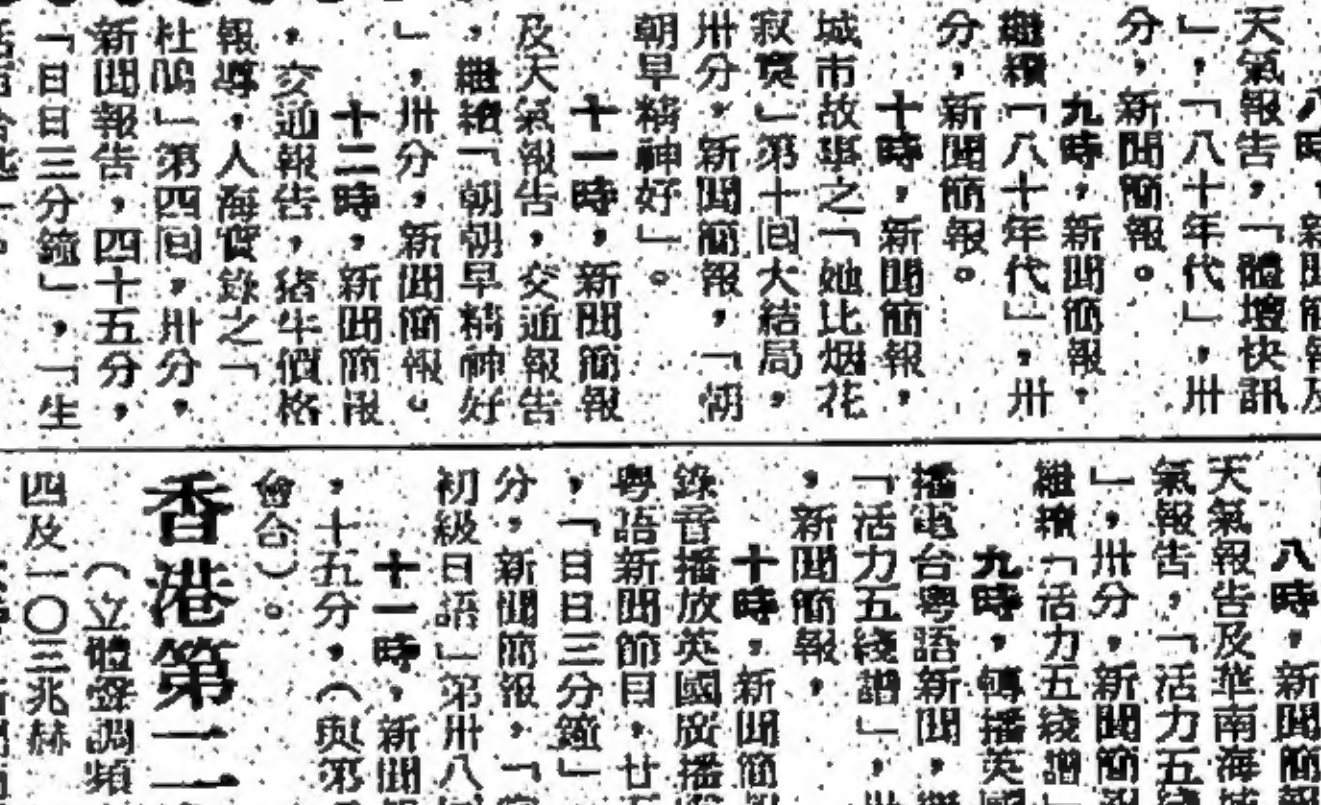 八時，新聞簡報及
天氣報告，「體壇快訊
」，「八十年代」，卅
分，新聞簡報。
九時，新聞簡報，
繼續「八十年代」，卅
分，新聞簡報。
十時，新聞簡報，
城市故事之「她比烟花
寂寞」第十囘大結局，
卅分，新聞簡報，「朝
朝早精神好」。
十一時，新聞簡報
及天氣報告，交通報告
，繼續「朝朝早精神好
」，卅分，新聞簡報。
十二時，新聞簡報
，交通報告，豬牛價格
報導，人海實錄之「
杜鵑」第四囘，卅分，
新聞報告，四十五分，
「日日三分鐘」，「生
八時，新聞簡報
天氣報告及華南海域
氣報告，「活力五綫
」，卅分，新聞簡報
繼續「活力五綫譜」
九時，轉播英國
播電台粵語新聞，繼
「活力五綫譜」，卅
，新聞簡報，
十時，新聞簡
錄音播放英國廣播
粵語新聞節目，廿五
，「日日三分鐘」
分，新聞簡報，「
初級日語」第卅八
十一時，新聞
，十五分，（與第
會合）。
香港第二
（立體聲調頻
四及一〇三兆赫